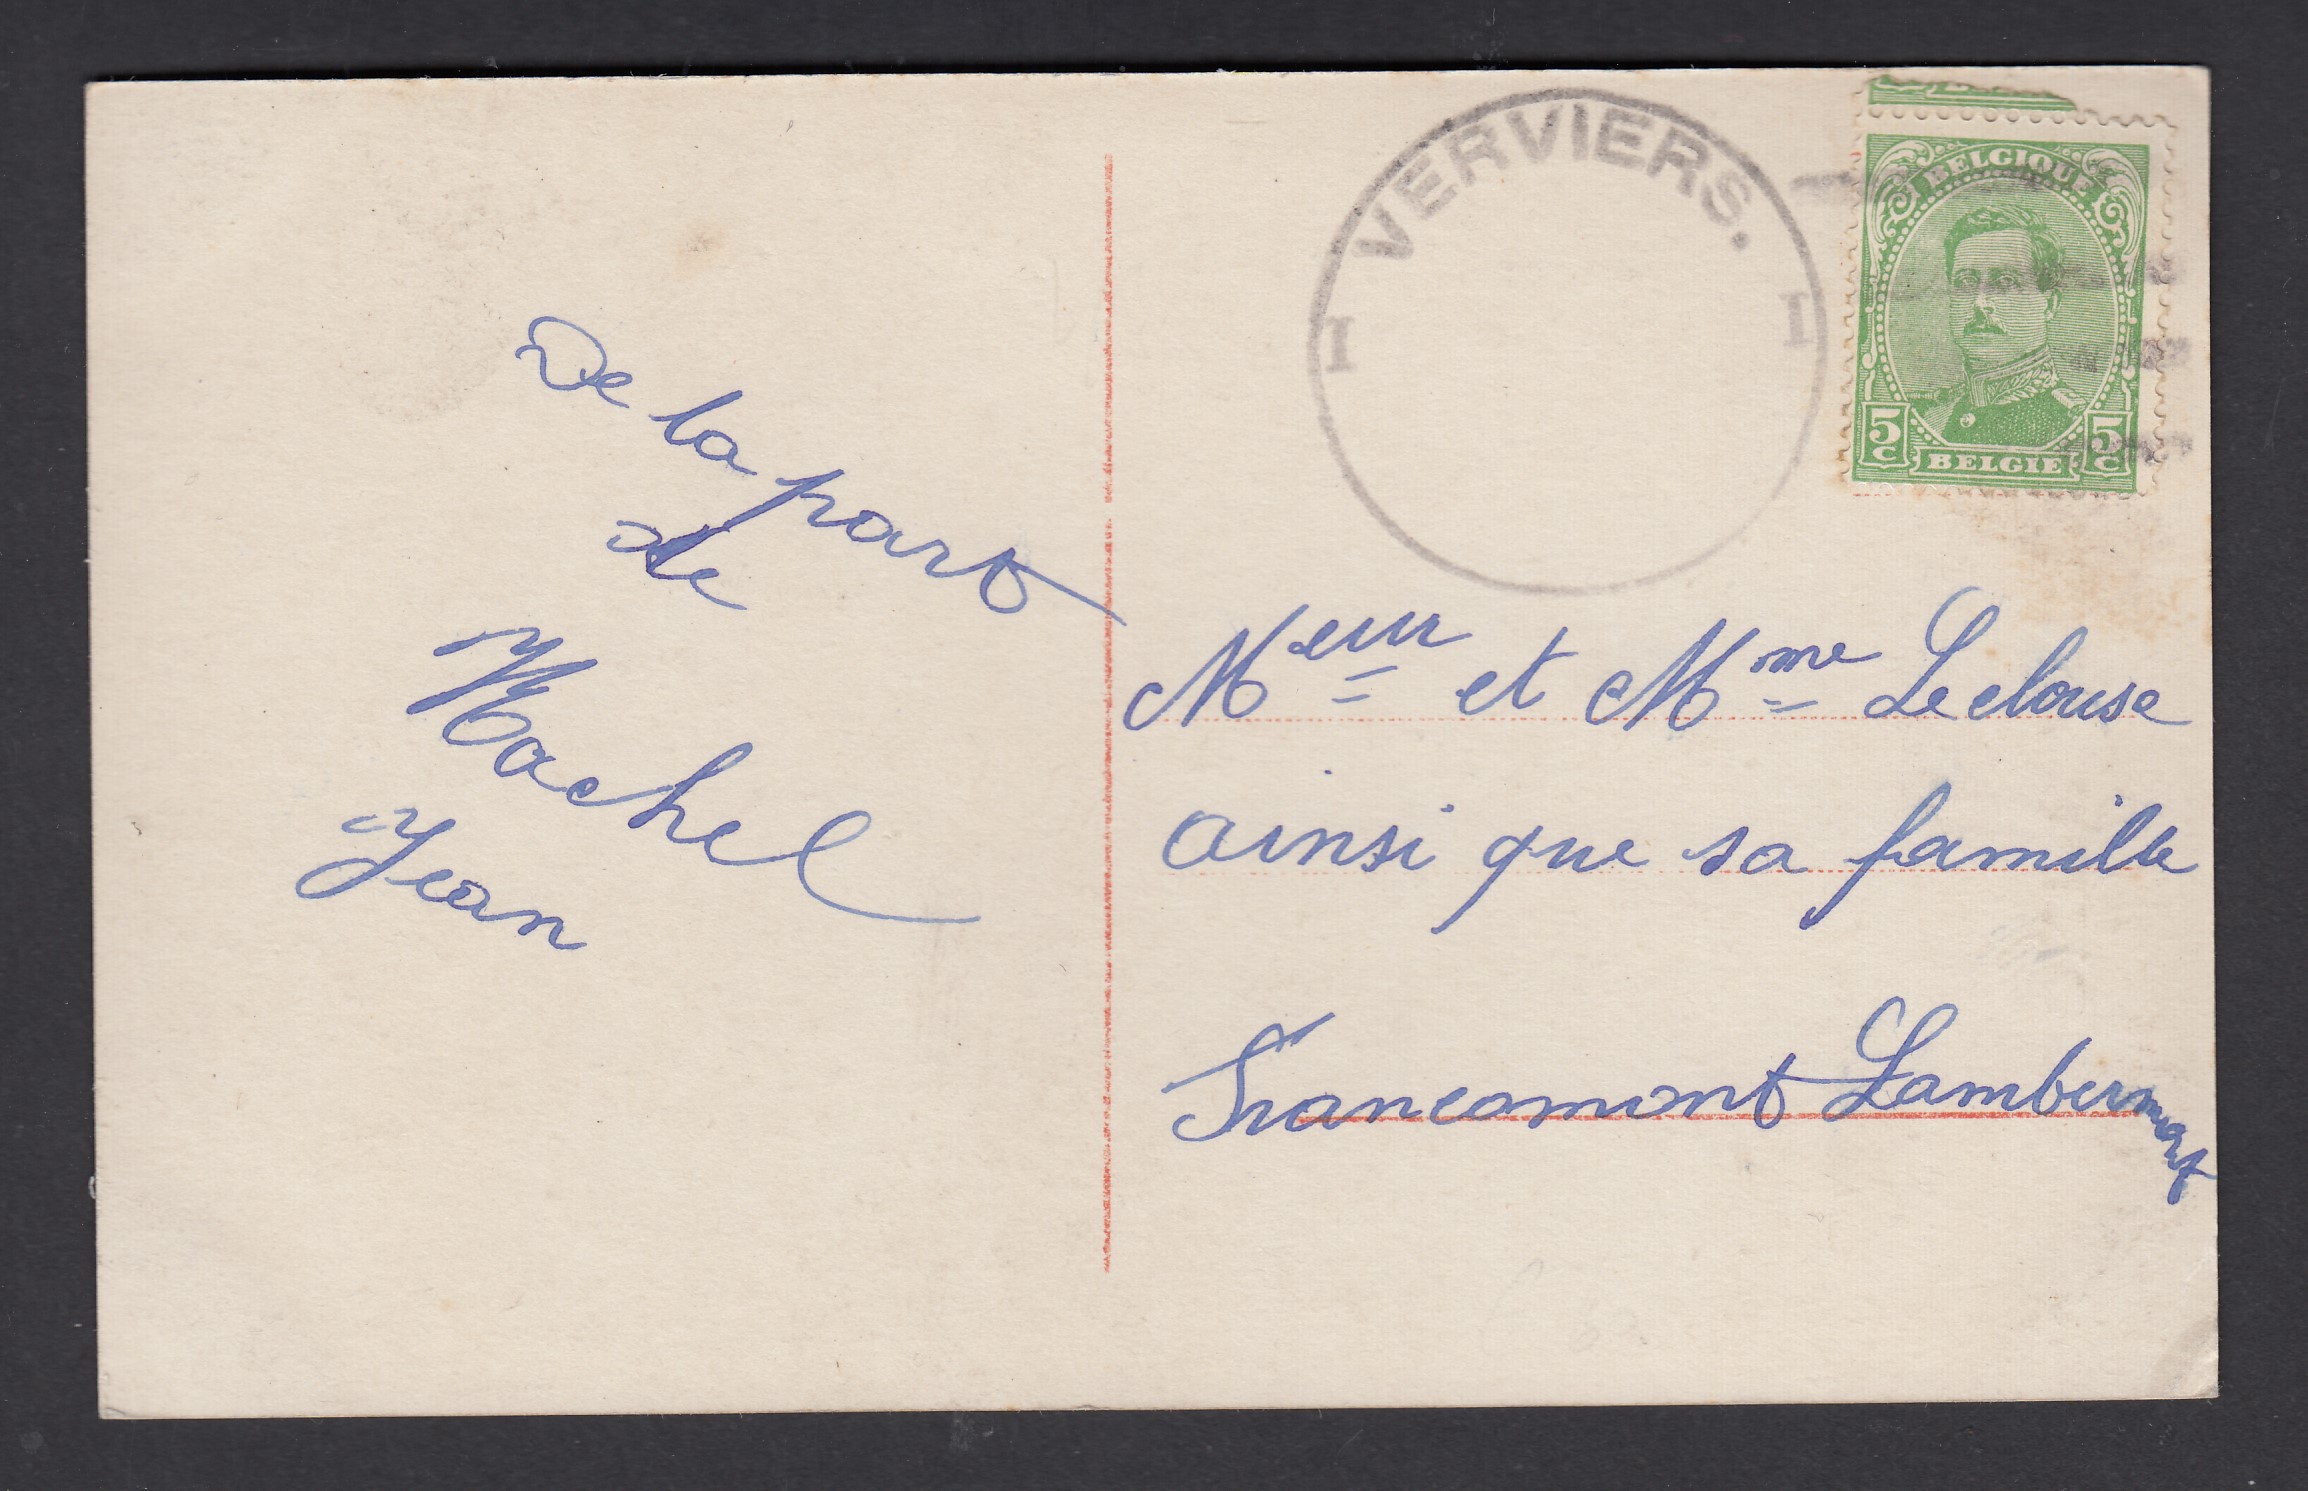 De la part
de
Machel
Jean
VERVIERS.
I I
BELGIQUE
5 C 5 C
BELGIE
Meur et Mme Leclouse
ainsi que sa famille
Francomont Lambermont